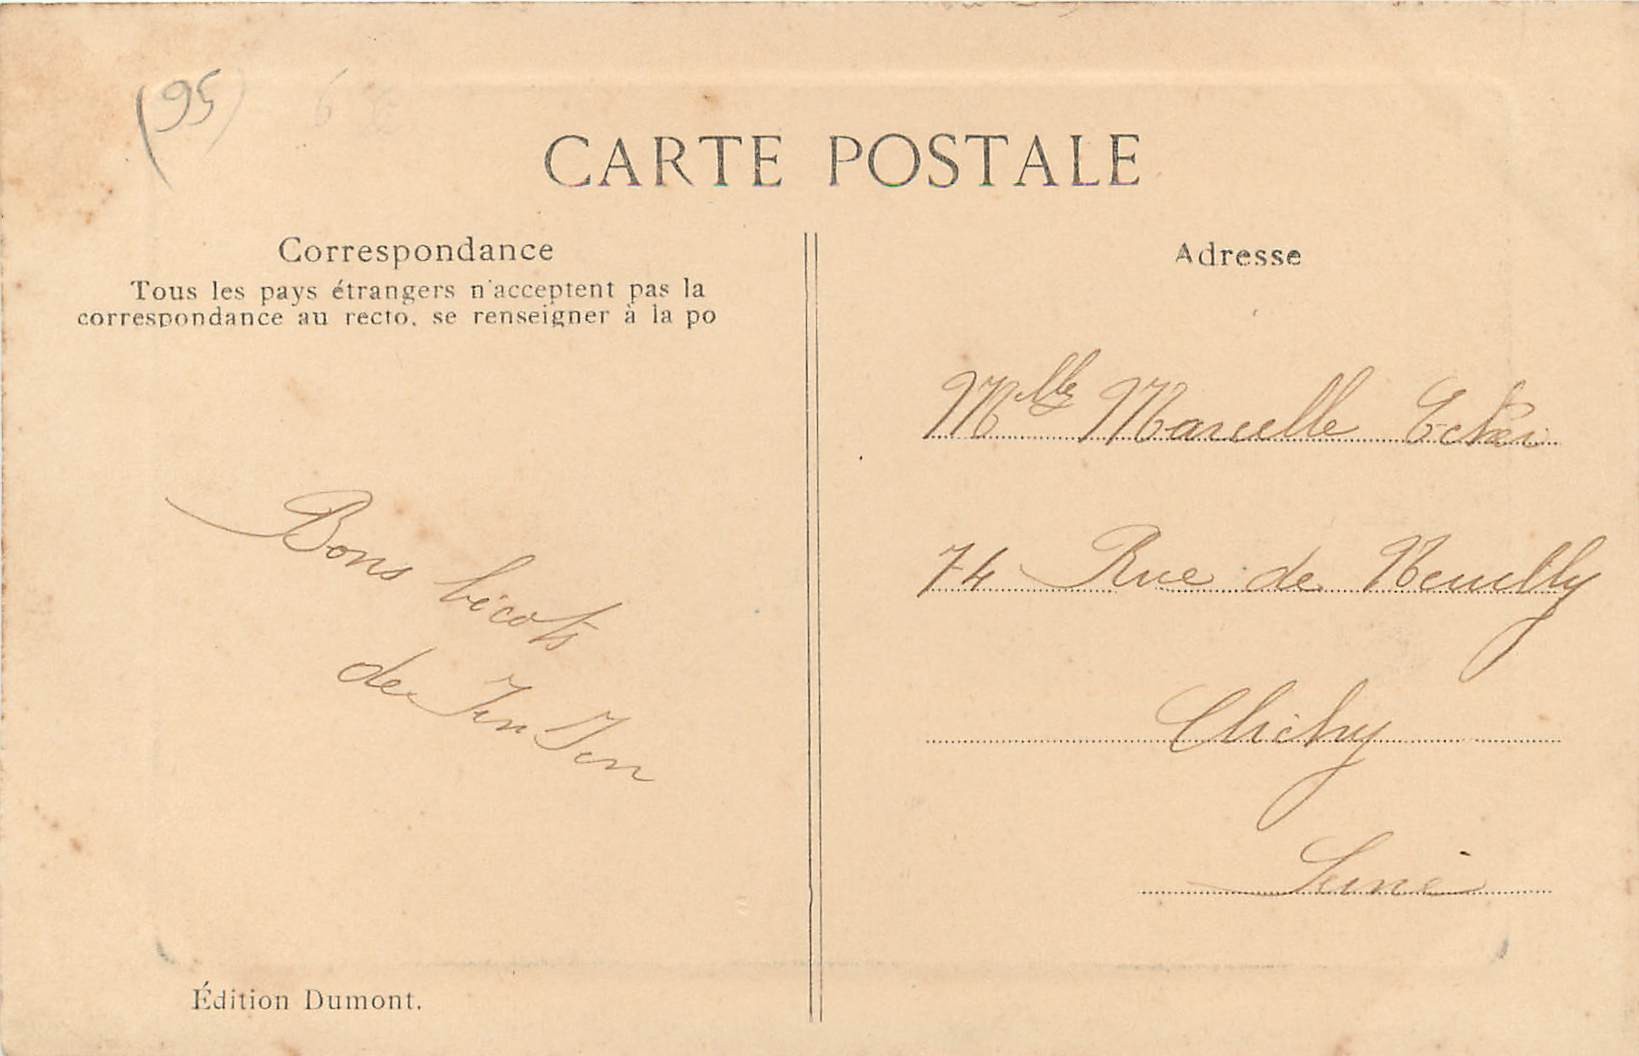 (95)
CARTE POSTALE
Correspondance
Tous les pays étrangers n'acceptent pas la
correspondance au recto, se renseigner à la po
Bons bécots
de
Adresse
Mlle Marcelle
74 Rue de Neuilly
Clichy
Seine
Édition Dumont.